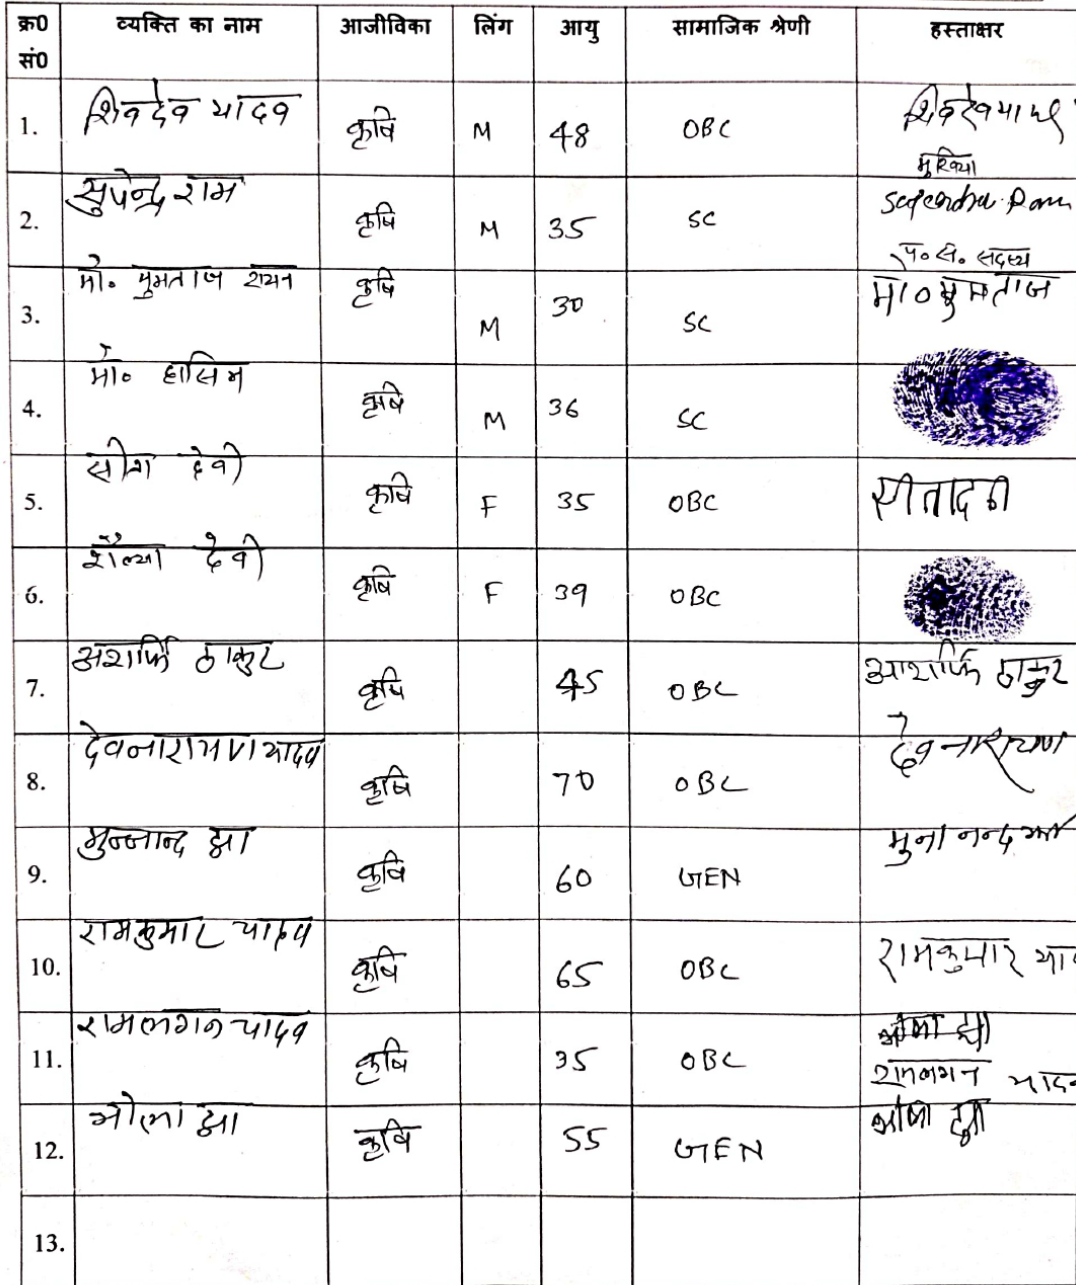 क्र0 सं0 व्यक्ति का नाम आजीविका लिंग आयु सामाजिक श्रेणी हस्ताक्षर
1. शिवदेव यादव कृषि M 48 OBC शिवदेव
मुखिया
2. सुपेन्द्र राम कृषि M 35 SC Supendra Ram
पं० स० सदस्य
3. मो० मुमताज कृषि M 30 SC मो० मुमताज
4. मो० हासिम कृषि M 36 SC
5. सीता देवी कृषि F 35 OBC सीता
6. शैल्या देवी कृषि F 39 OBC
7. अशर्फि ठाकुर कृषि 45 OBC आशर्फि ठाकुर
8. देवनारायण यादव कृषि 70 OBC देवनारायण
9. झा कृषि 60 GEN मुना नन्द झा
10. रामकुमार यादव कृषि 65 OBC रामकुमार
11. रामलगन यादव कृषि 35 OBC रामलगन
12. भोला झा कृषि 55 GEN भोला झा
13.